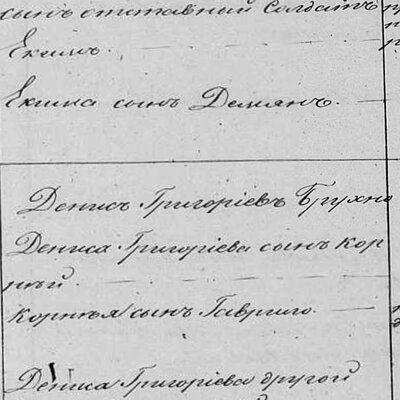 сынъ отставный Солдатъ
Екимъ.
Екима сынъ Демянъ.
Денисъ Григоріевъ Брухно
Дениса Григоріева сынъ Кор
ній.
Корнѣя сынъ Гаврило.
Дениса Григоріева другой